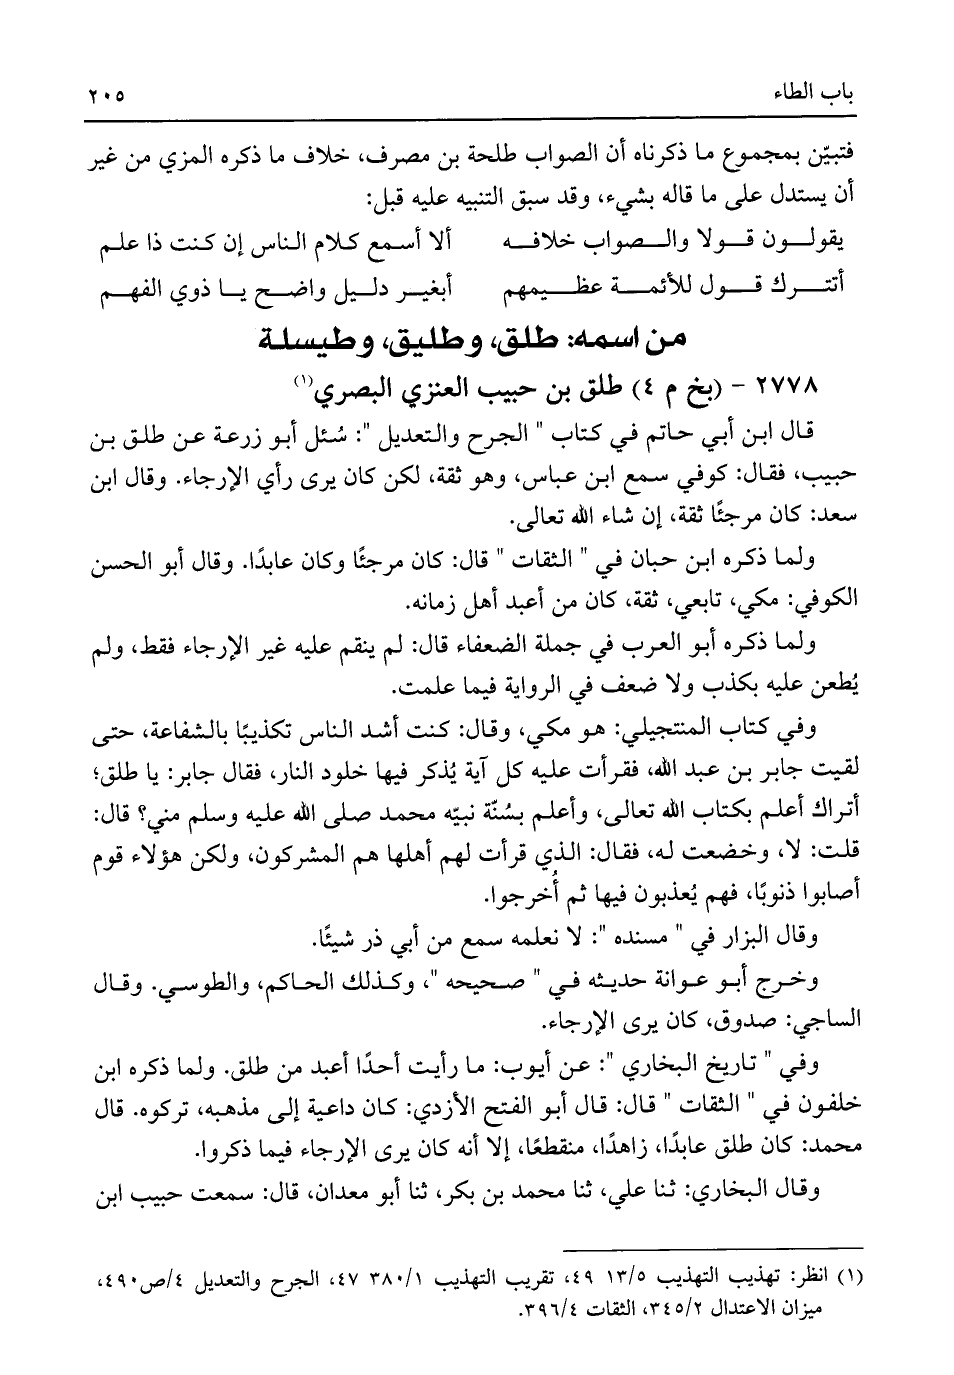 باب الطاء
٢٠٥
فتبيّن بمجموع ما ذكرناه أن الصواب طلحة بن مصرف، خلاف ما ذكره المزي من غير
أن يستدل على ما قاله بشيء، وقد سبق التنبيه عليه قبل:
يقولـــون قـــولا والـــصواب خلافـــه ألا أسمع كلام الناس إن كنت ذا علم
أتتـــرك قـــول للأئمـــة عظـــيمهم أبغيـر دليـل واضـح يـا ذوي الفهـم
من اسمه: طلق، وطليق، وطيسلة
٢٧٧٨ - (بخ م ٤) طلق بن حبيب العنزي البصري(١)
قال ابن أبي حاتم في كتاب " الجرح والتعديل ": سُئل أبو زرعة عن طلق بن
حبيب، فقال: كوفي سمع ابن عباس، وهو ثقة، لكن كان يرى رأي الإرجاء. وقال ابن
سعد: كان مرجئًا ثقة، إن شاء الله تعالى.
ولما ذكره ابن حبان في " الثقات " قال: كان مرجئًا وكان عابدًا. وقال أبو الحسن
الكوفي: مكي، تابعي، ثقة، كان من أعبد أهل زمانه.
ولما ذكره أبو العرب في جملة الضعفاء قال: لم ينقم عليه غير الإرجاء فقط، ولم
يُطعن عليه بكذب ولا ضعف في الرواية فيما علمت.
وفي كتاب المنتجيلي: هو مكي، وقال: كنت أشد الناس تكذيبًا بالشفاعة، حتى
لقيت جابر بن عبد الله، فقرأت عليه كل آية يُذكر فيها خلود النار، فقال جابر: يا طلق؛
أتراك أعلم بكتاب الله تعالى، وأعلم بسُنّة نبيّه محمد صلى الله عليه وسلم مني؟ قال:
قلت: لا، وخضعت له، فقال: الذي قرأت لهم أهلها هم المشركون، ولكن هؤلاء قوم
أصابوا ذنوبًا، فهم يُعذبون فيها ثم أُخرجوا.
وقال البزار في " مسنده ": لا نعلمه سمع من أبي ذر شيئًا.
وخرج أبو عوانة حديثه في " صحيحه "، وكذلك الحاكم، والطوسي. وقال
الساجي: صدوق، كان يرى الإرجاء.
وفي " تاريخ البخاري ": عن أيوب: ما رأيت أحدًا أعبد من طلق. ولما ذكره ابن
خلفون في " الثقات " قال: قال أبو الفتح الأزدي: كان داعية إلى مذهبه، تركوه. قال
محمد: كان طلق عابدًا، زاهدًا، منقطعًا، إلا أنه كان يرى الإرجاء فيما ذكروا.
وقال البخاري: ثنا علي، ثنا محمد بن بكر، ثنا أبو معدان، قال: سمعت حبيب ابن
(١) انظر: تهذيب التهذيب ١٣/٥ ٤٩، تقريب التهذيب ٣٨٠/١ ٤٧، الجرح والتعديل ٤/ص٤٩٠،
ميزان الاعتدال ٣٤٥/٢، الثقات ٣٩٦/٤.